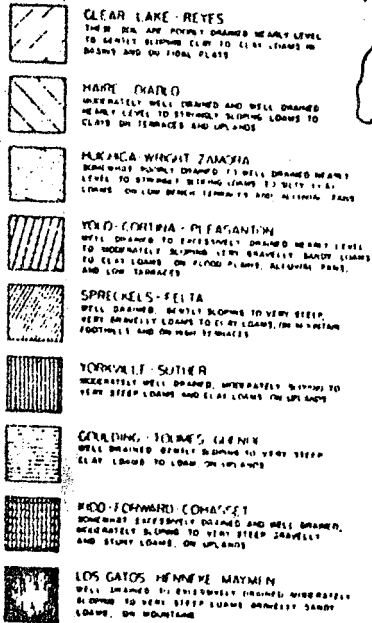 CLEAR LAKE - REYES
THESE SOIL ARE POORLY DRAINED NEARLY LEVEL
TO GENTLY SLOPING CLAY TO CLAY LOAMS IN
BASINS AND ON TIDAL FLATS
HAIRE DIABLO
MODERATELY WELL DRAINED AND WELL DRAINED
NEARLY LEVEL TO STRONGLY SLOPING LOAMS TO
CLAYS ON TERRACES AND UPLANDS
HUICHICA-WRIGHT ZAMORA
SOMEWHAT POORLY DRAINED TO WELL DRAINED NEARLY
LEVEL TO STRONGLY SLOPING LOAMS TO SILTY CLAY
LOAMS ON LOW BENCH TERRACES AND ALLUVIAL FANS
YOLO-CORTINA-PLEASANTON
WELL DRAINED TO EXCESSIVELY DRAINED NEARLY LEVEL
TO MODERATELY SLOPING VERY GRAVELLY SANDY LOAMS
TO CLAY LOAMS ON FLOOD PLAINS, ALLUVIAL FANS,
AND LOW TARRACES
SPRECKELS-FELTA
WELL DRAINED, GENTLY SLOPING TO VERY STEEP,
VERY GRAVELLY LOAMS TO CLAY LOAMS, ON MOUNTAIN
FOOTHILLS AND ON HIGH TERRACES
YORKVILLE-SUTHER
MODERATELY WELL DRAINED, MODERATELY SLOPING TO
VERY STEEP LOAMS AND CLAY LOAMS ON UPLANDS
GOULDING-TOOMES GUENOC
WELL DRAINED GENTLY SLOPING TO VERY STEEP
CLAY LOAMS TO LOAM ON UPLANDS
KIDD-FORWARD-COHASSET
SOMEWHAT EXCESSIVELY DRAINED AND WELL DRAINED,
MODERATELY SLOPING TO VERY STEEP GRAVELLY
AND STONY LOAMS, ON UPLANDS
LOS GATOS HENNEKE MAYMEN
WELL DRAINED TO EXCESSIVELY DRAINED MODERATELY
SLOPING TO VERY STEEP LOAMS GRAVELLY SANDY
LOAMS, ON MOUNTAINS